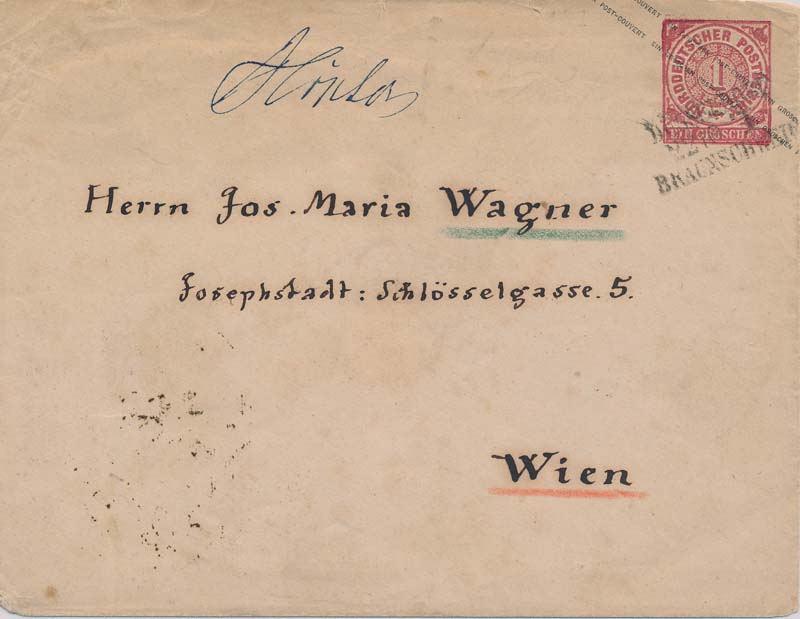 POST-COUVERT EIN GROSCHEN
NORDDEUTSCHER POSTBEZIRK
1
EIN GROSCHEN
BRAUNSCHWEIG
Herrn Jos. Maria Wagner
Josephstadt: Schlösselgasse. 5.
Wien